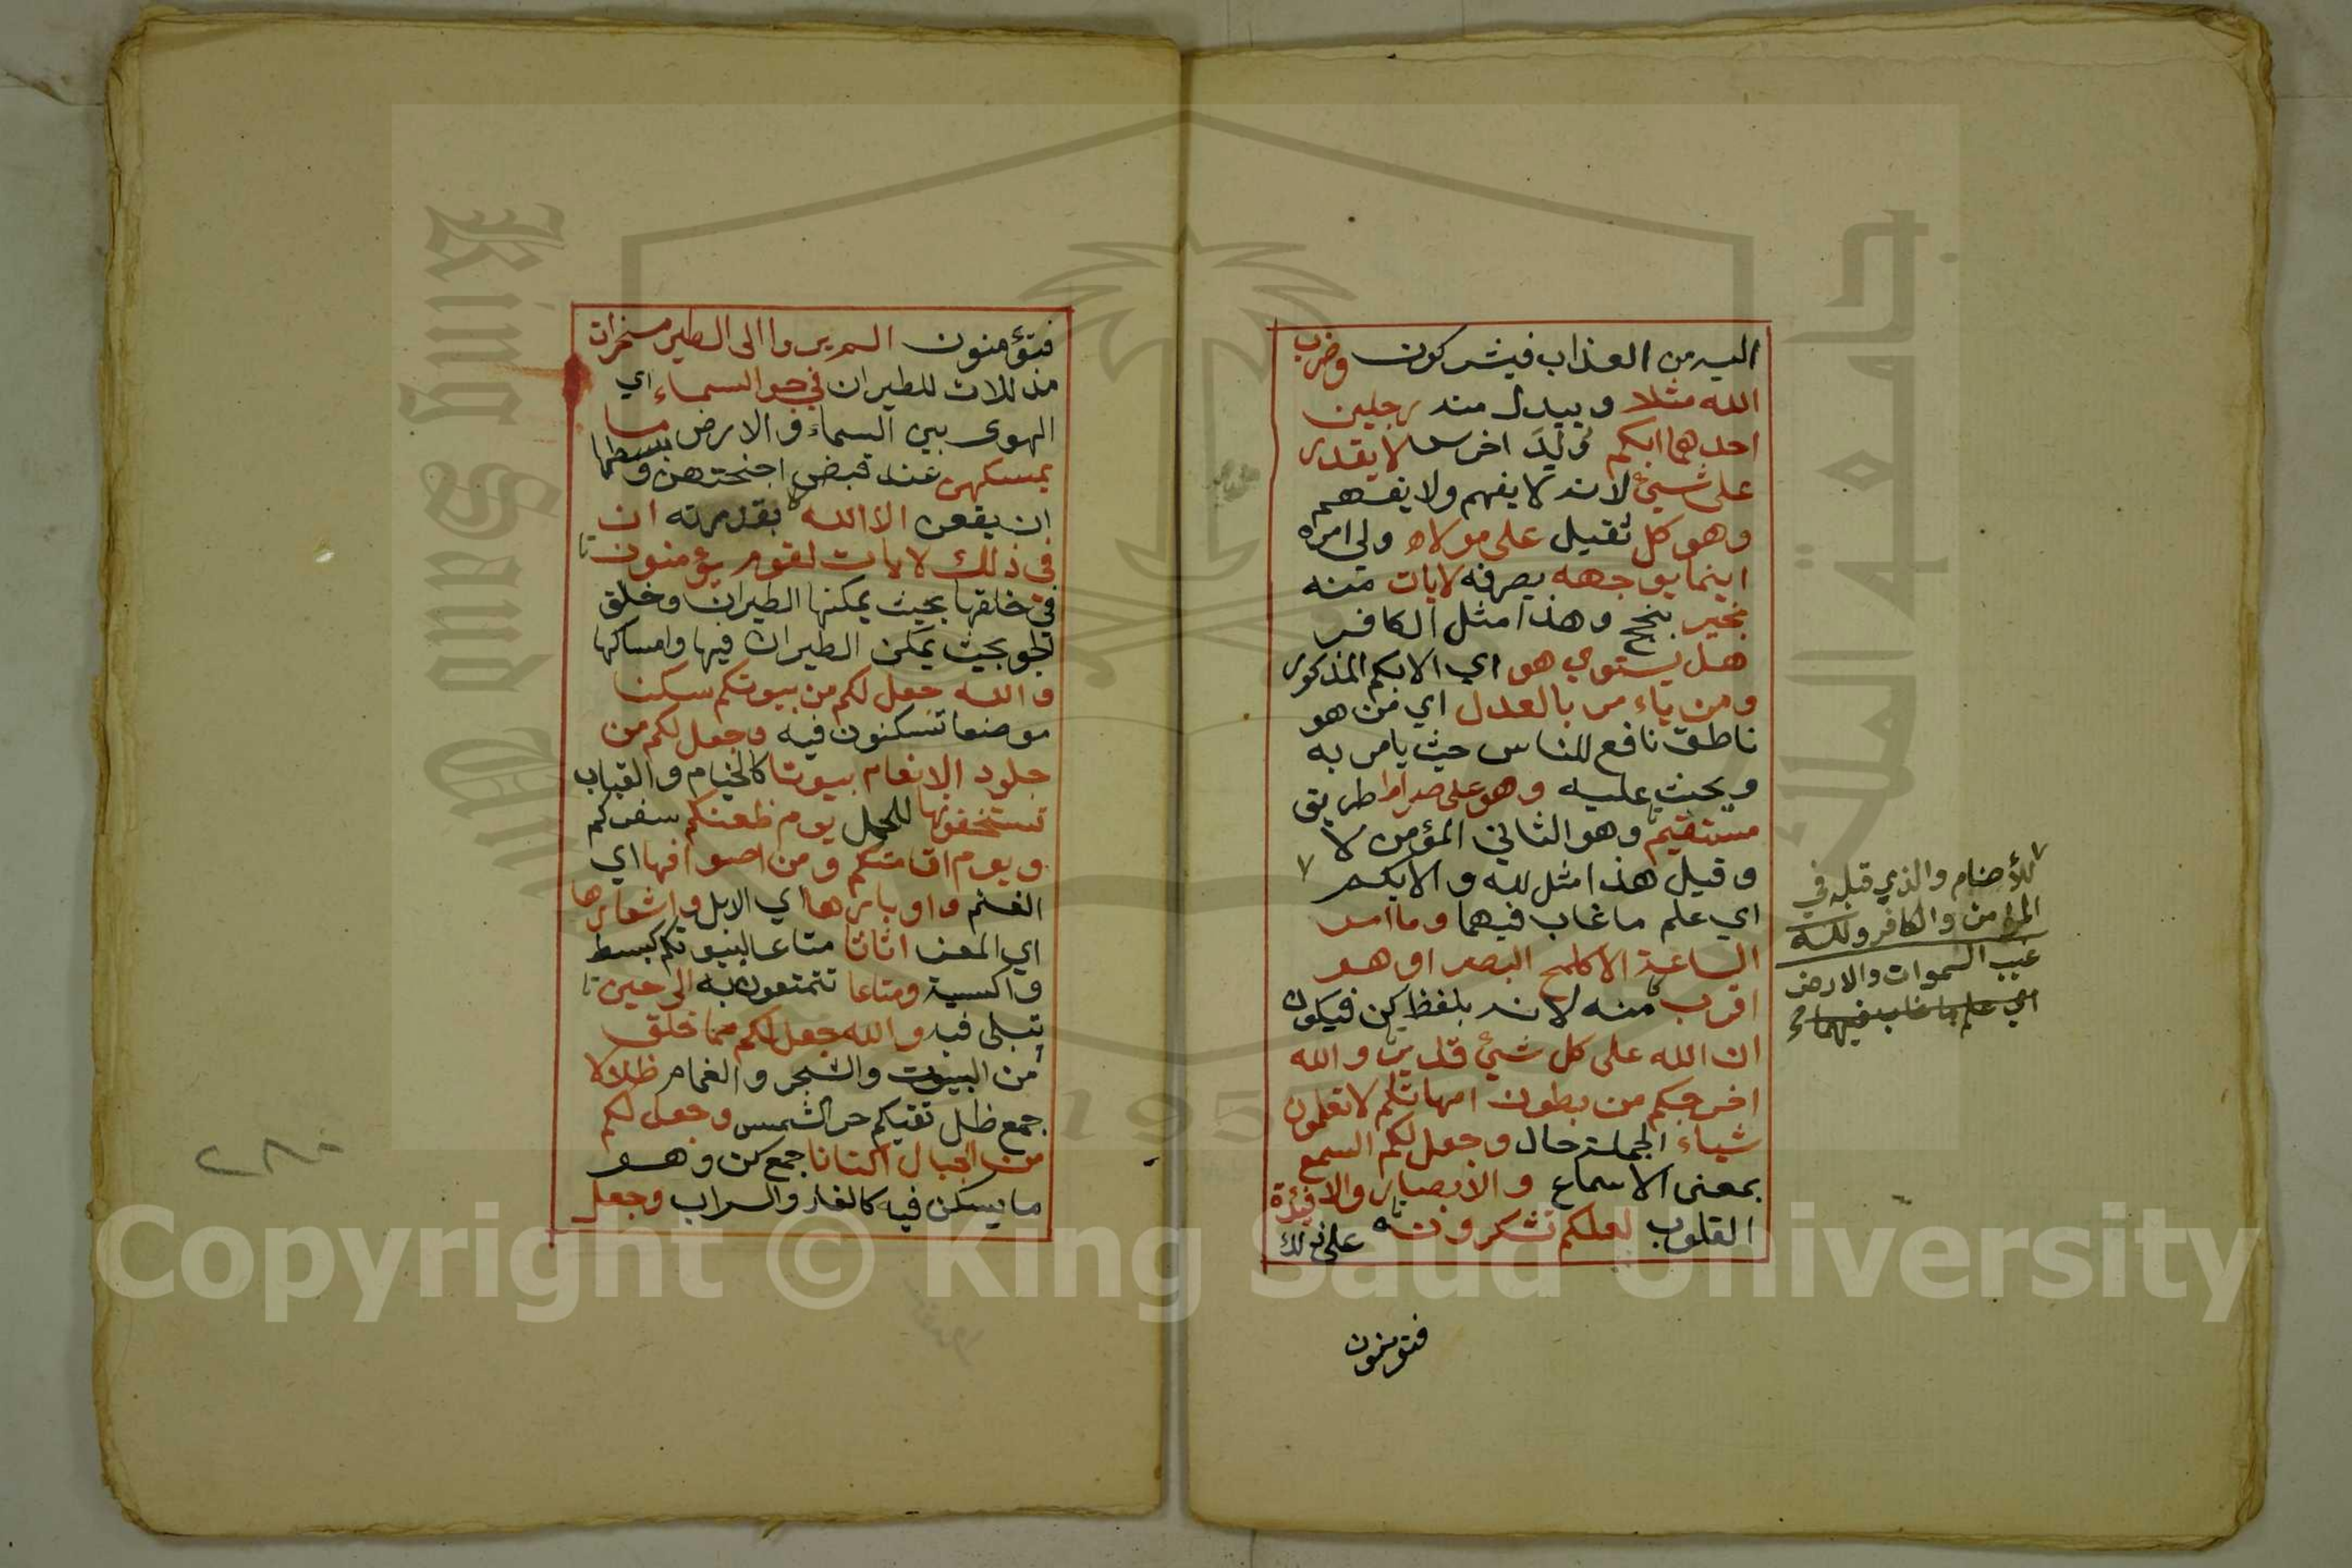 اليه من العذاب فيشركون وضرب
الله مثلا ويبدل منه رجلين
احدهما ابكم وُلِدَ اخرس لا يقدر
على شيئ لانه لا يفهم ولا يفهم
وهو كل ثقيل على مولاه ولي امره
اينما يوجهه يصرفه لايات منه
بخير بنجح وهذا مثل الكافر
هل يستوي هو اي الابكم المذكور
ومن ياءمر بالعدل اي من هو
ناطق نافع للناس حيث يامر به
ويحث عليه وهو على صراط طريق
مستقيم وهو الثاني المؤمن لا
وقيل هذا مثل لله والابكم ٧
اي علم ما غاب فيهما وما امر
الساعة الا كلمح البصر او هو
اقرب منه لانه بلفظ كن فيكون
ان الله على كل شيئ قدير والله
اخرجكم من بطون امهاتكم لا تعلمون
شياء الجملة حال وجعل لكم السمع
بمعنى الاسماع والابصار والافئدة
القلوب لعلكم تشكرونه على ذلك
فتومنون
٧ للأصنام والذي قبله في
المؤمن والكافر ولله
غيب السموات والارض
اي علم ما غاب فيهما
فتؤمنون الم يروا الى الطير مسخرات
مذللات للطيران في جو السماء اي
الهوى بين السماء والارض ما
يمسكهن عند قبض اجنحتهن وبسطها
ان يقعن الا الله بقدرته ان
في ذلك لايات لقوم يؤمنون
في خلقها بحيث يمكنها الطيران وخلق
الجو بحيث يمكن الطيران فيها وامساكها
والله جعل لكم من بيوتكم سكنا
موضعا تسكنون فيه وجعل لكم من
جلود الانعام بيوتا كالخيام والقباب
تستخفونها للحمل يوم ظعنكم سفركم
ويوم اقامتكم ومن اصوافها اي
الغنم واوبارها اي الابل واشعارها
اي المعز اثاثا متاعا لبيوتكم كبسط
واكسية ومتاعا تتمتعون به الى حين
تبلى فيه والله جعل لكم مما خلق
من البيوت والشجر والغمام ظلالا
جمع ظل تقيكم حر الشمس وجعل لكم
من الجبال اكنانا جمع كن وهو
ما يسكن فيه كالغار والسراب وجعل
Copyright © King Saud University
King Saud University
جامعة الملك
195